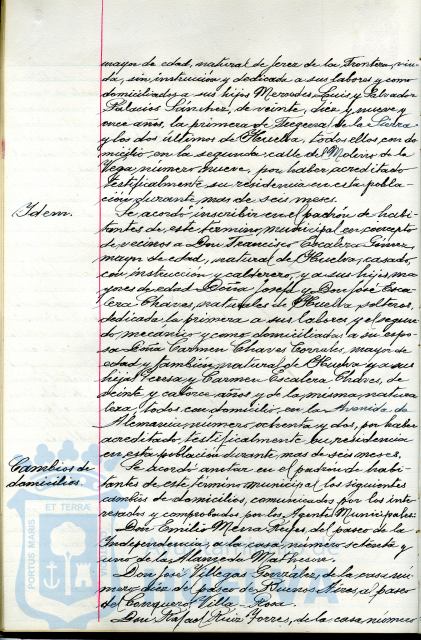 mayor de edad, natural de Jerez de la Frontera, viu-
da, sin instrucción y dedicada a sus labores y como
domiciliados a sus hijos Mercedes, Luis y Salvador
Palacios Sánchez, de veinte, diez y nueve y
once años, la primera de Higuera de la Sierra
y los dos últimos de Huelva, todos ellos con do-
micilio en la segunda calle del Molino de la
Vega, número nueve, por haber acreditado
testificalmente su residencia en esta pobla-
ción durante mas de seis meses.
Idem.
Se acordó inscribir en el padrón de habi-
tantes de este término municipal en concepto
de vecinos a Don Francisco Escalera Gómez,
mayor de edad, natural de Huelva, casado,
con instrucción y calderero, y a sus hijos, ma-
yores de edad Doña Josefa y Don José Esca-
lera Chaves, naturales de Huelva, solteros,
dedicada la primera a sus labores y el segun-
do mecánico y como domiciliadas a su espo-
sa Doña Carmen Chaves Corrales, mayor de
edad y también natural de Huelva y a sus
hijas Teresa y Carmen Escalera Chaves, de
veinte y catorce años, y de la misma natura-
leza, todos con domicilio en la Avenida de
Alemania, número ochenta y dos, por haber
acreditado testificalmente su residencia
en esta población durante mas de seis meses.
Cambios de
domicilios.
Se acordó anotar en el padrón de habi-
tantes de este término municipal los siguientes
cambios de domicilios, comunicados por los inte-
resados y comprobados por los Agentes Municipales:
Don Emilio Meira del paseo de la
Independencia a la casa número setenta y
uno de la Alameda Matheine.
Don José Villegas González, de la casa nú-
mero diez del paseo de Buenos Aires al paseo
del Conquero, Villa-Rosa.
Don Rafael Ruiz Torres, de la casa número
PORTUS MARIS ET TERRAE
Ayuntamiento de
HUELVA